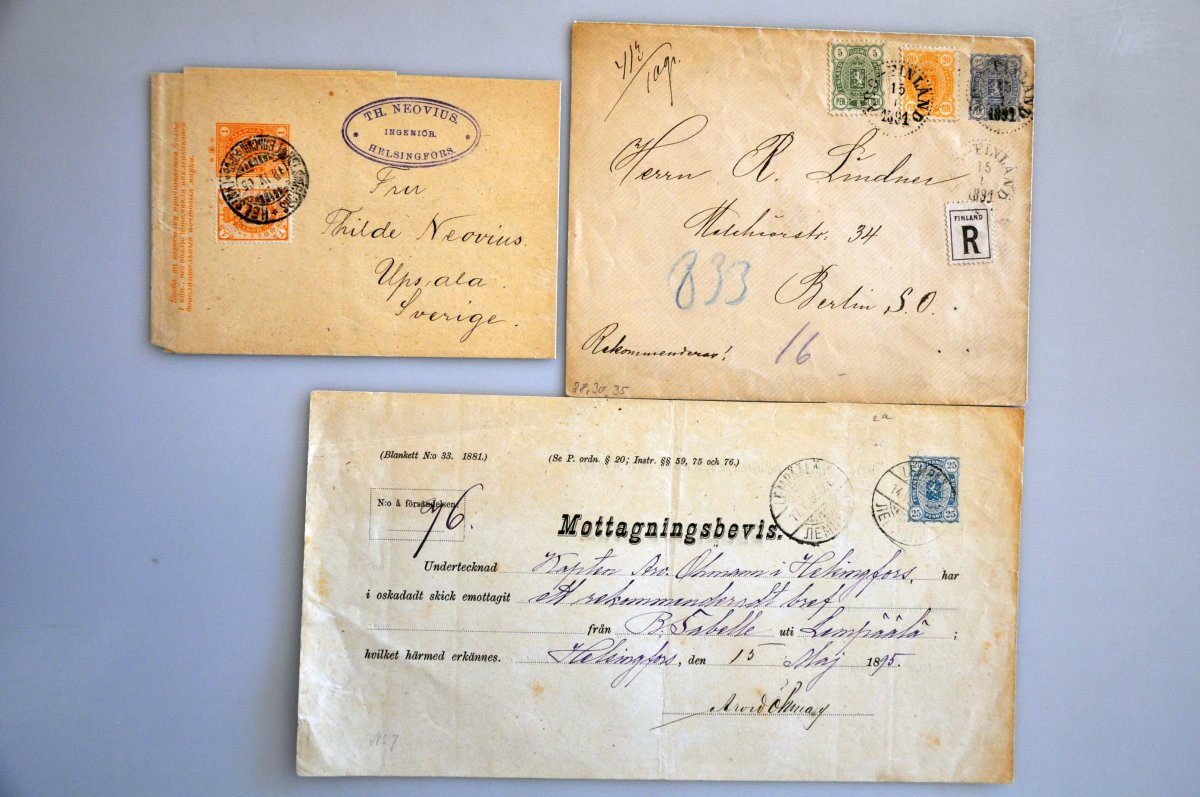 TH. NEOVIUS.
INGENIÖR.
HELSINGFORS.
Fru
Thilde Neovius.
Upsala.
Sverige.
1 1
1 1
HELSINKI
5 5
PEN
20 20
FINLAND
15
1891
FINLAND
15
1891
FINLAND
15
1891
Herrn R. Lindner
Melchiorstr. 34
Berlin S.O.
FINLAND
R
833
16
Rekommenderas!
28,30,35
2a
(Blankett N:o 33. 1881.)
(Se P. ordn. § 20; Instr. §§ 59, 75 och 76.)
25 25
25 25
N:o å försändelsen:
76.
Mottagningsbevis.
Undertecknad Kapten Arv. Öhmann i Helsingfors, har
i oskadadt skick emottagit ett rekommenderadt bref
från B. Tabelle uti Lempäälä;
hvilket härmed erkännes. Helsingfors, den 15 Maj 1895.
Arvid Öhmann
No 7